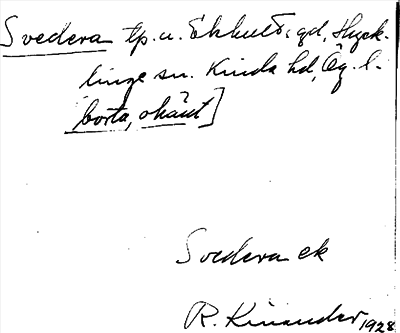 Svedera tp. u. Ekhult, gd, Hyck-
linge sn. Kinda hd, Ög. l.
borta, okänt]
Svedera ek
R. Kinander 1928